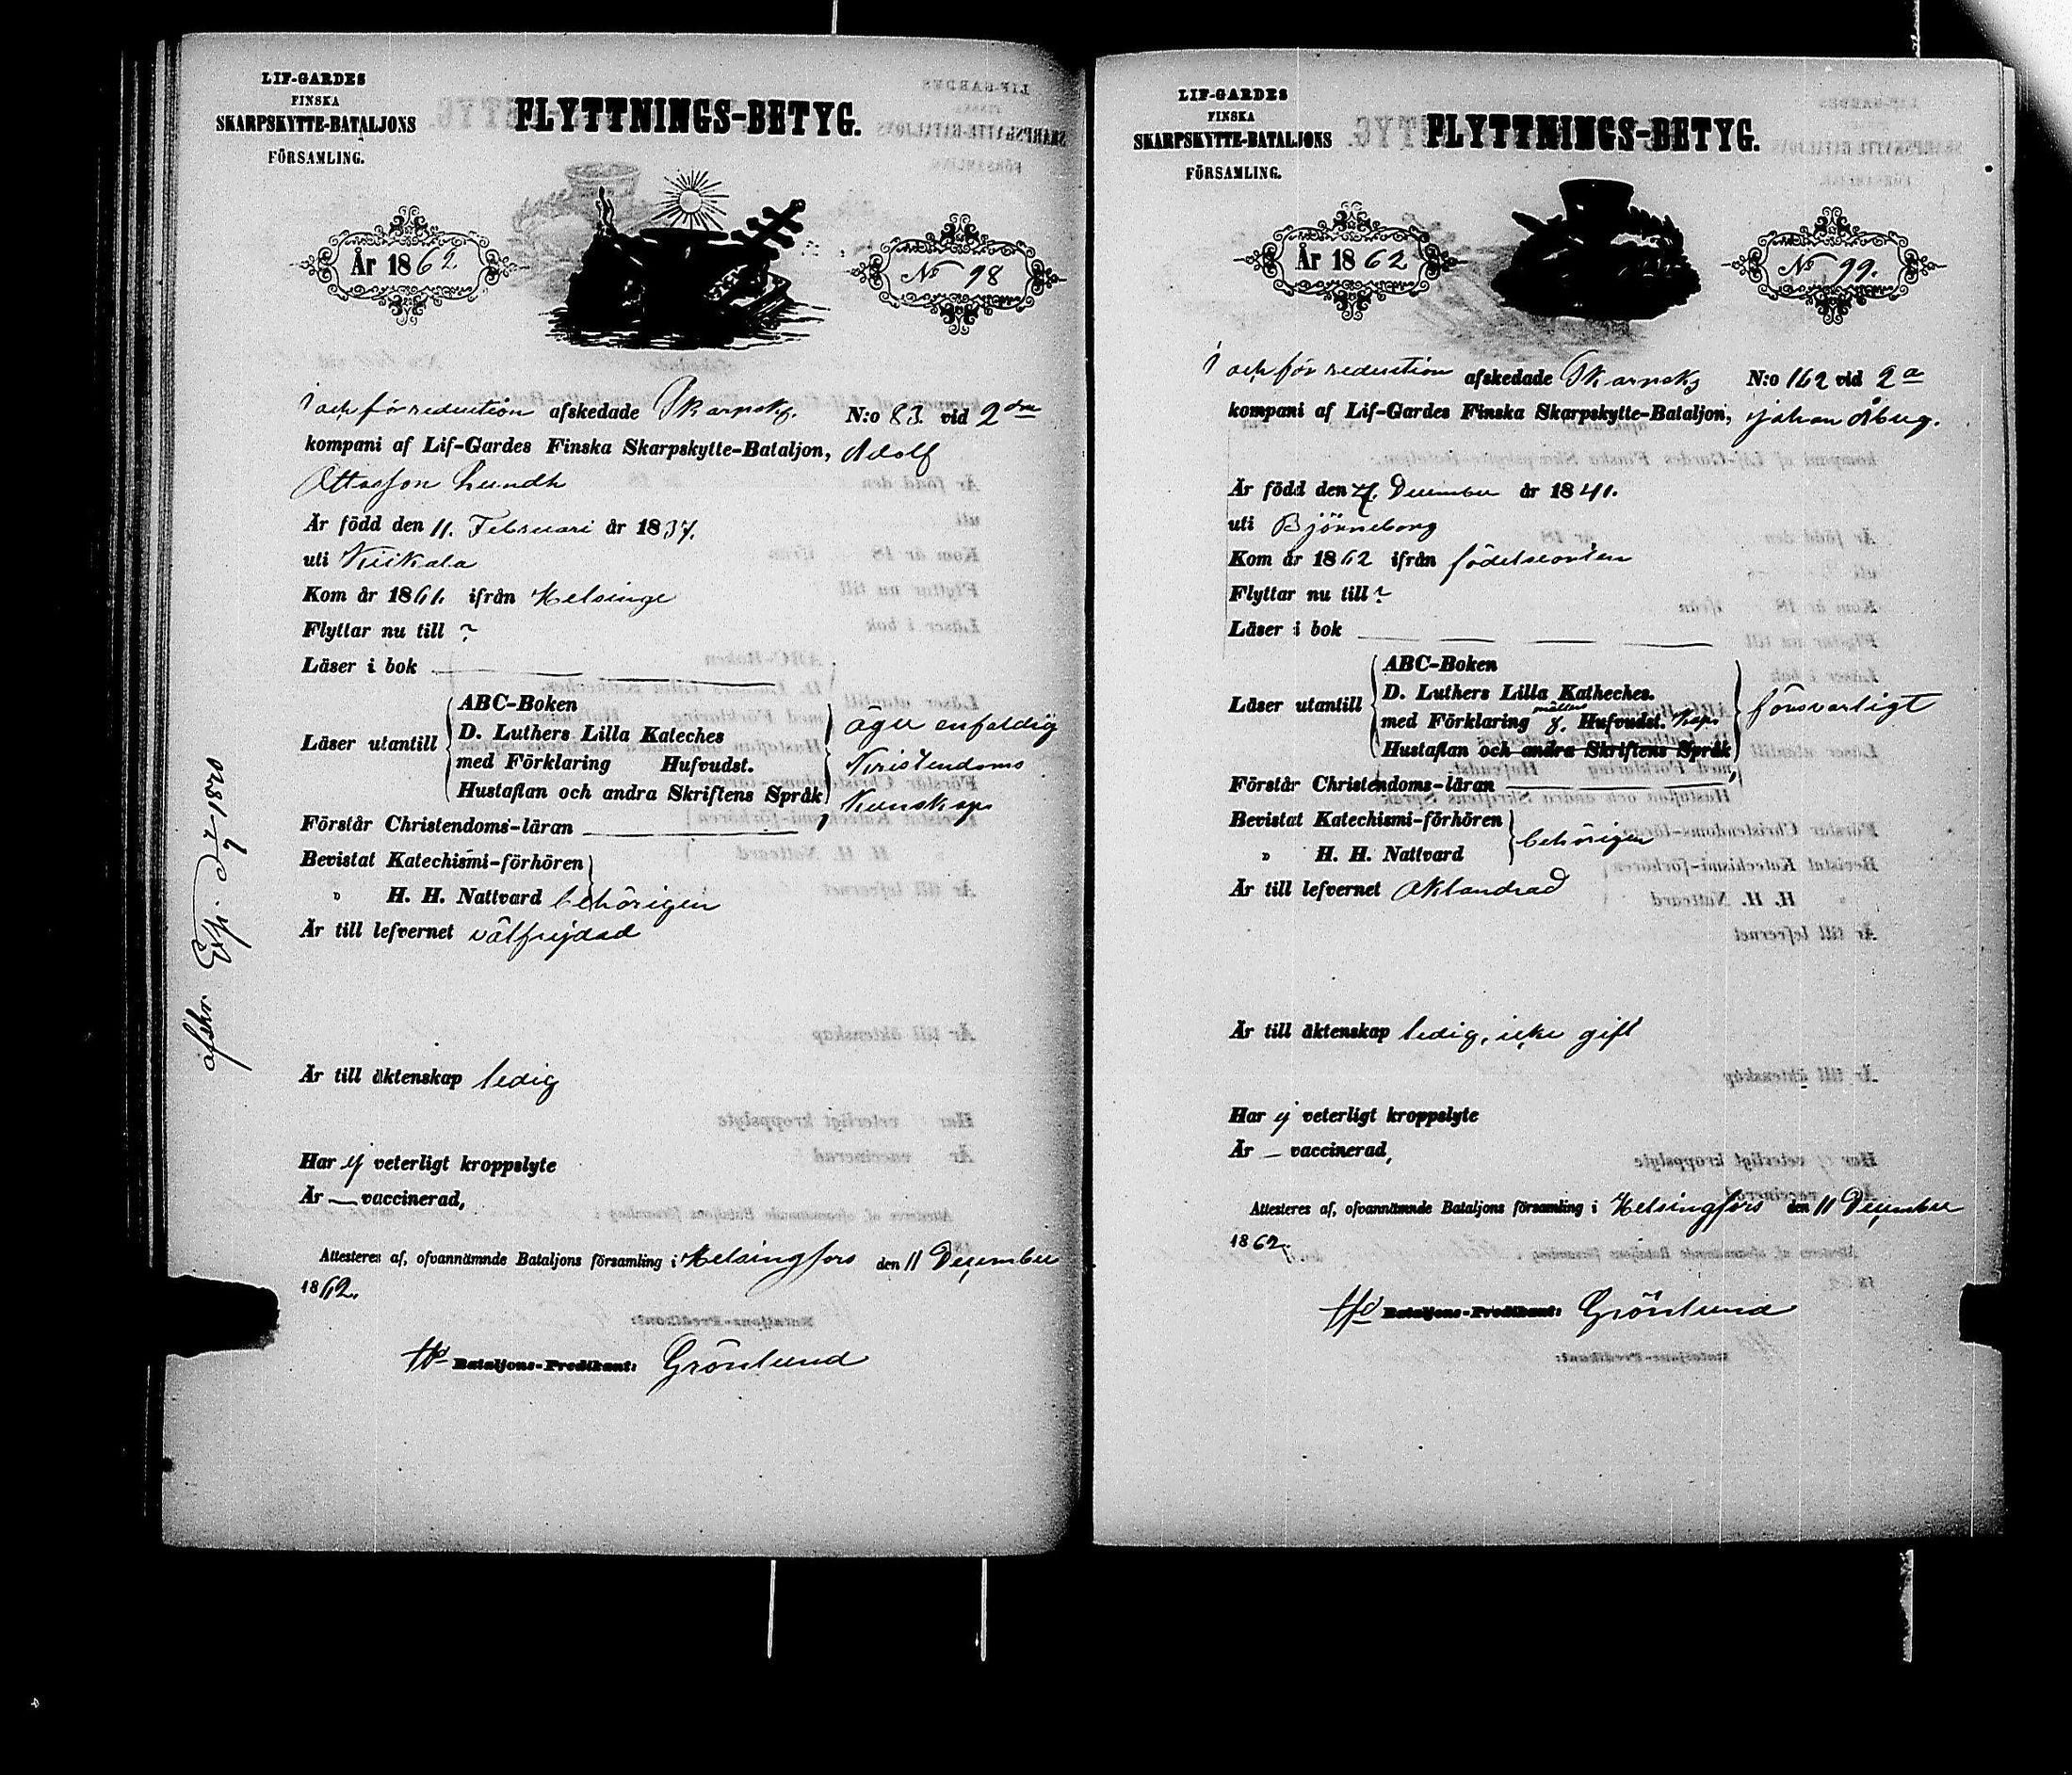 LIF-GARDES
FINSKA
SKARPSKYTTE-BATALJONS
FÖRSAMLING.
FLYTTNINGS-BETYG.
År 1862
No 98
I och för reduction afskedade Skarpsk. N:o 83. vid 2dra
kompani af Lif-Gardes Finska Skarpskytte-Bataljon, Adolf
Ottosson Lundh
Är född den 11. Februari år 1837.
uti Kiikala
Kom år 1861. ifrån Helsinge
Flyttar nu till ?
Läser i bok
Läser utantill
ABC-Boken
D. Luthers Lilla Kateches
med Förklaring Hufvudst.
Hustaflan och andra Skriftens Språk
äger enfaldig
Kristendoms
Kunskap
Förstår Christendoms-läran
Bevistat Katechismi-förhören
" H. H. Nattvard behörigen
Är till lefvernet välfrejdad
Är till äktenskap ledig
Har ej veterligt kroppslyte
Är — vaccinerad,
Attesteres af, ofvannämnde Bataljons församling i Helsingfors den 11 December
1862.
Bataljons-Predikant: Grönlund
afskr.
LIF-GARDES
FINSKA
SKARPSKYTTE-BATALJONS
FÖRSAMLING.
FLYTTNINGS-BETYG.
År 1862
No 99.
I och för reduction afskedade Skarpsk N:o 162 vid 2a
kompani af Lif-Gardes Finska Skarpskytte-Bataljon, Johan Åberg.
Är född den December år 1841.
uti Björneborg
Kom år 1862 ifrån födelseorten
Flyttar nu till ?
Läser i bok
Läser utantill
ABC-Boken
D. Luthers Lilla Katheches.
med Förklaring Hufvudst.
Hustaflan och andra Skriftens Språk
försvarligt
Förstår Christendoms-läran
Bevistat Katechismi-förhören
" H. H. Nattvard
behörigen
Är till lefvernet oklandrad
Är till äktenskap ledig, icke gift
Har ej veterligt kroppslyte
Är — vaccinerad,
Attesteres af, ofvannämnde Bataljons församling i Helsingfors den 11 December
1862.
Bataljons-Predikant: Grönlund